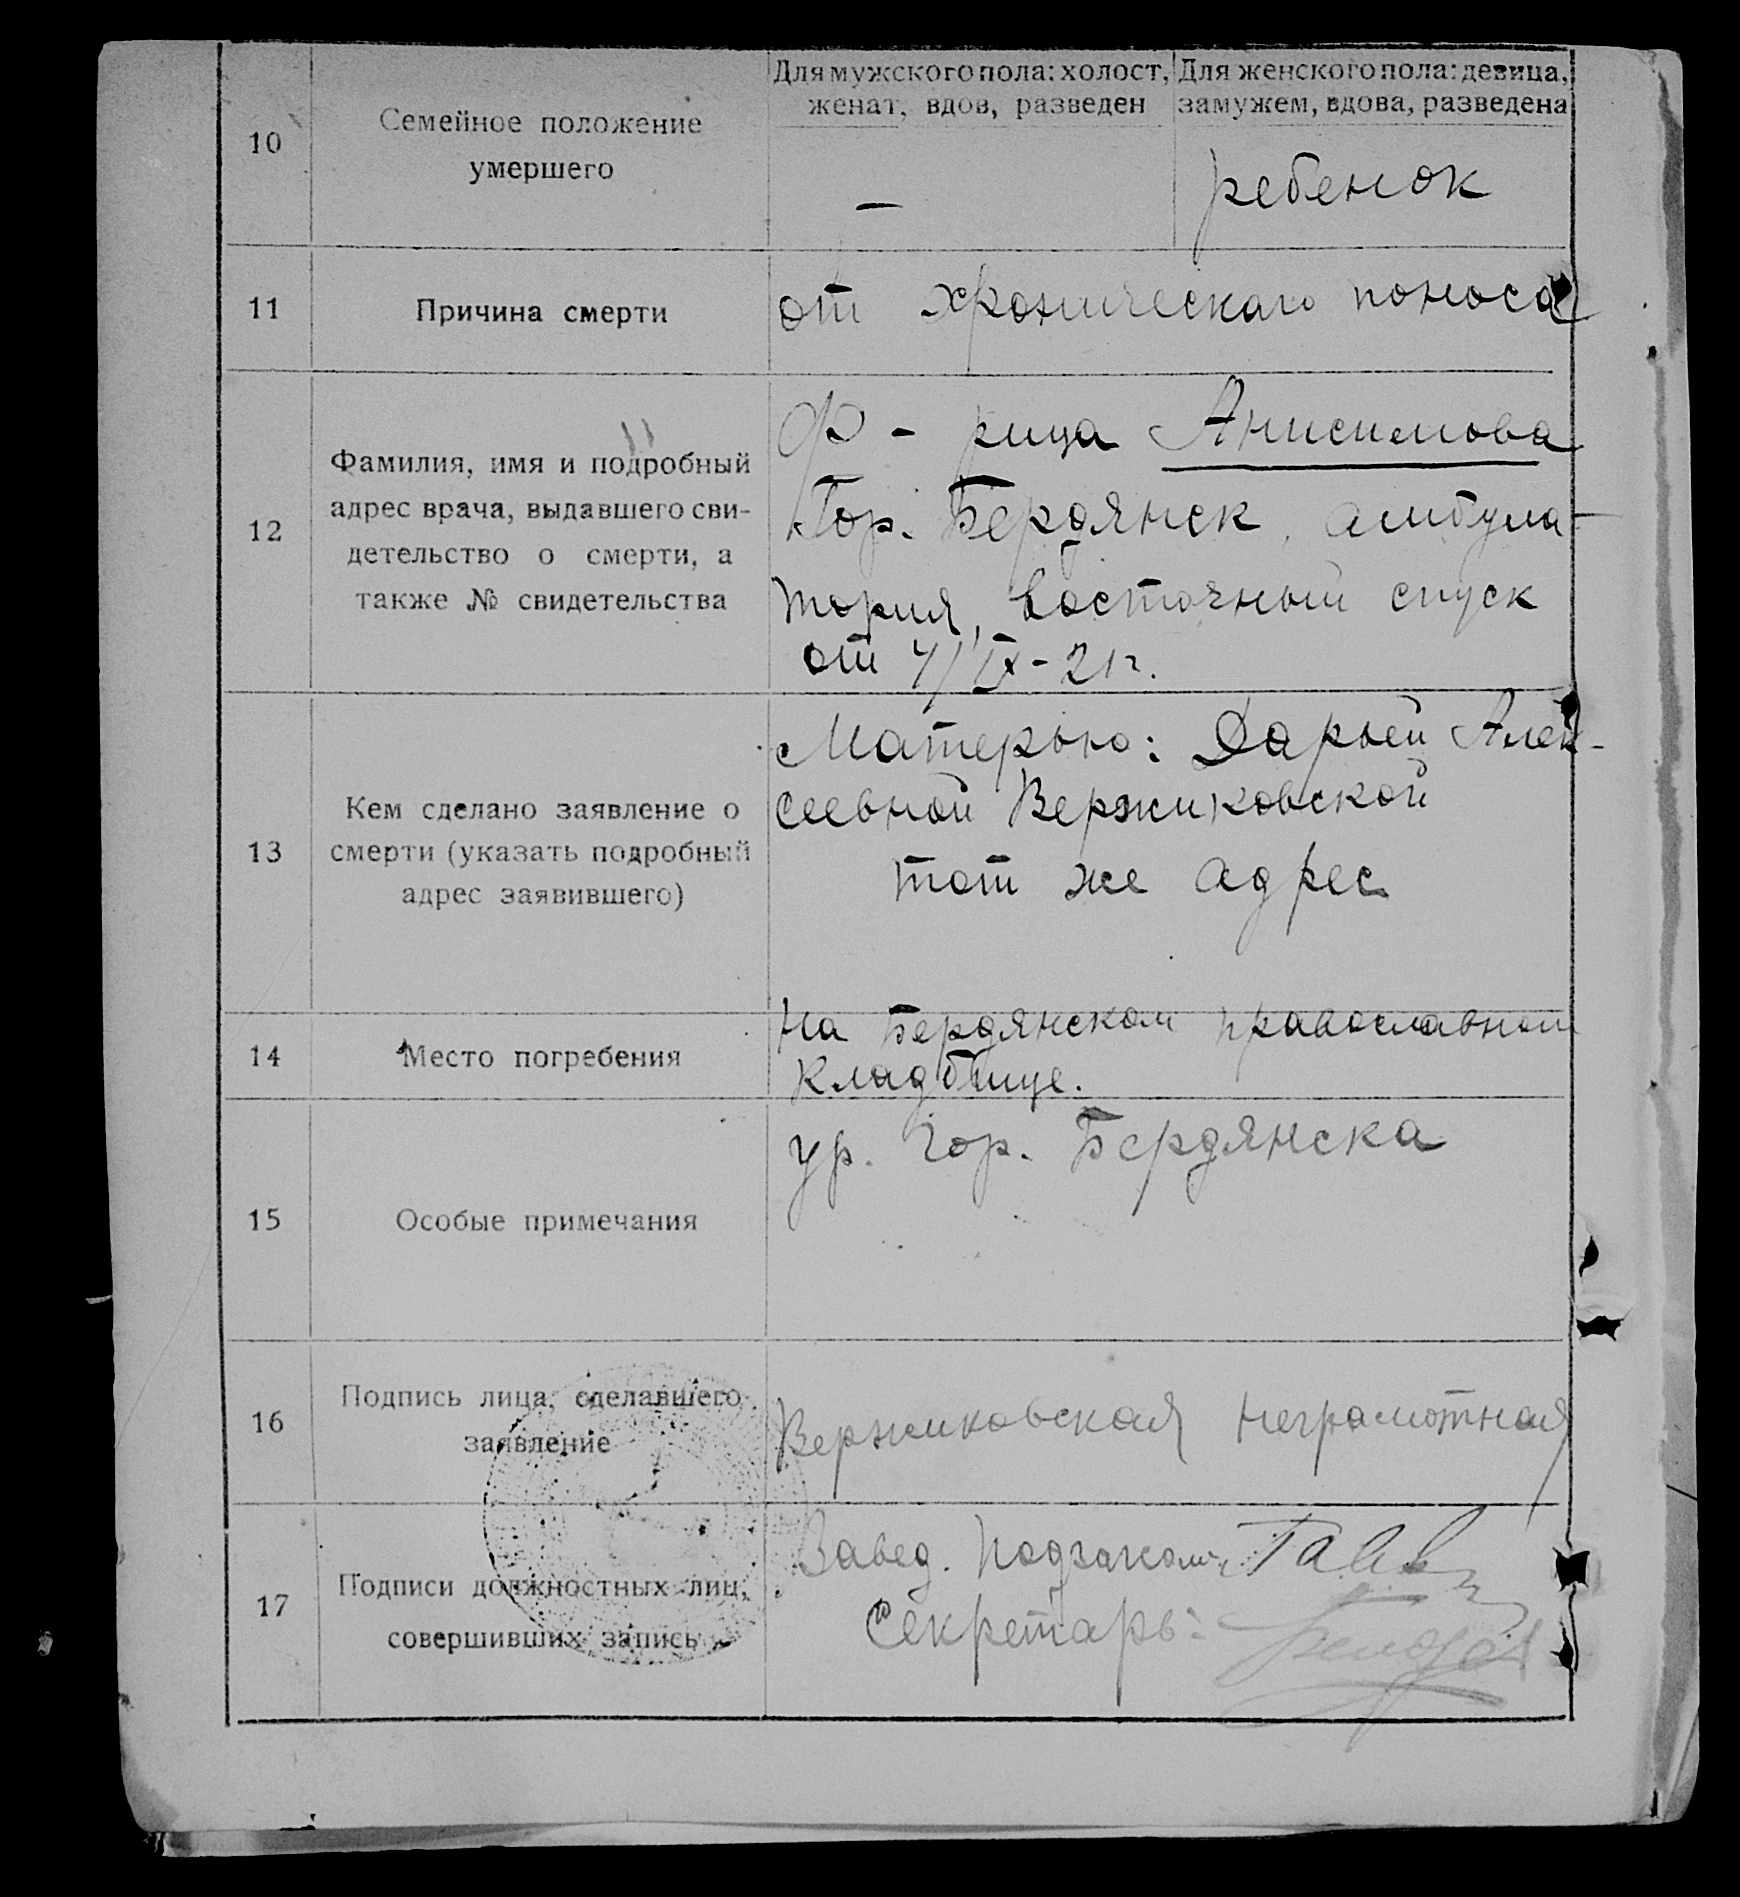 Для мужского пола: холост,
женат, вдов, разведен
Для женского пола: девица,
замужем, вдова, разведена
10
Семейное положение
умершего
—
ребенок
11
Причина смерти
от хроническаго поноса
12
Фамилия, имя и подробный
адрес врача, выдавшего сви-
детельство о смерти, а
также № свидетельства
Ф-рица Анисимова
Гор. Бердянск, амбула-
тория, Восточный спуск
от 4/IX-21г.
13
Кем сделано заявление о
смерти (указать подробный
адрес заявившего)
Матерью: Дарьей Алек-
сеевной Вержиковской
тот же адрес
14
Место погребения
на Бердянском православном
кладбище.
15
Особые примечания
ур. гор. Бердянска
16
Подпись лица, сделавшего
заявление
Вержиковская неграмотная
17
Подписи должностных лиц,
совершивших запись
Завед.
Секретарь: